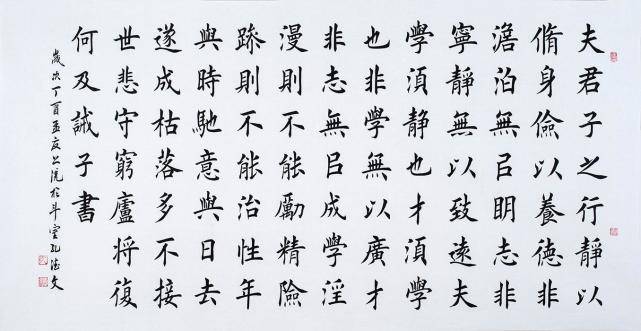 夫君子之行靜以
脩身儉以養德非
澹泊無㠯眀志非
寧靜無以致遠夫
學湏靜也才湏學
也非學無以廣才
非志無㠯成學淫
漫則不能勵精險
躁則不能治性年
與時馳意與日去
遂成枯落多不接
世悲守窮廬将復
何及誡子書
歲次丁酉孟夏上浣於斗室孔德文